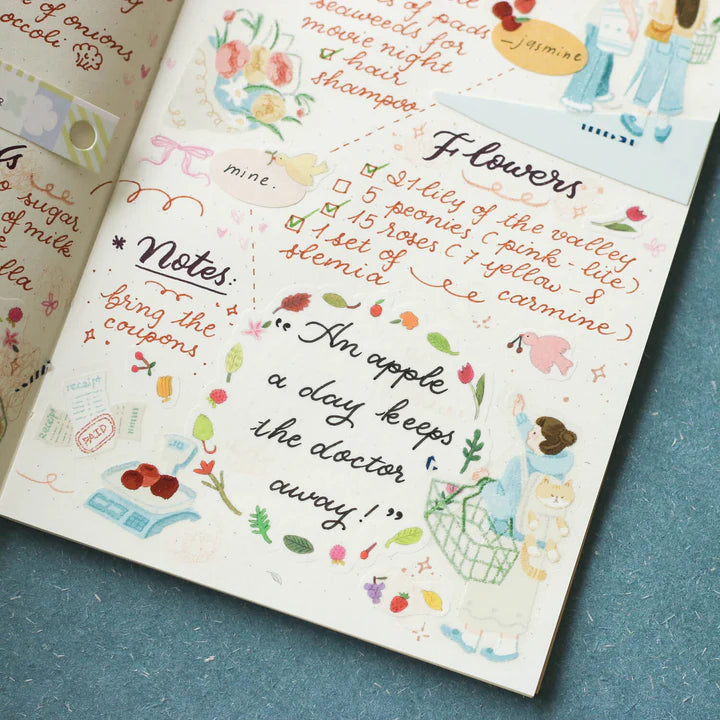 of onions
occoli
sugar
of milk
of pads
seaweeds for
movie night
hair
shampoo
jasmine
mine.
Flowers
21 lily of the valley
5 peonies (pink - lite)
15 roses (7 yellow - 8
carmine)
1 set of
slemia
* Notes:
bring the
coupons
receipt
receipt
PAID
"An apple
a day keeps
the doctor
away!"